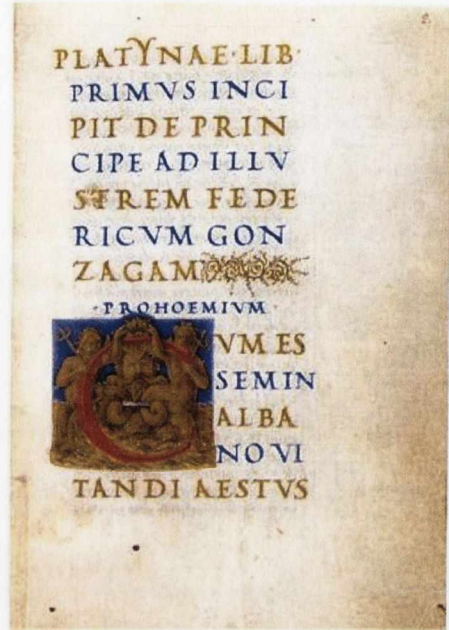 PLATYNAE·LIB·
PRIMVS INCI
PIT DE PRIN
CIPE AD ILLV
STREM FEDE
RICVM GON
ZAGAM
·PROHOEMIVM·
CVM ES
SEM IN
ALBA
NO VI
TANDI AESTVS